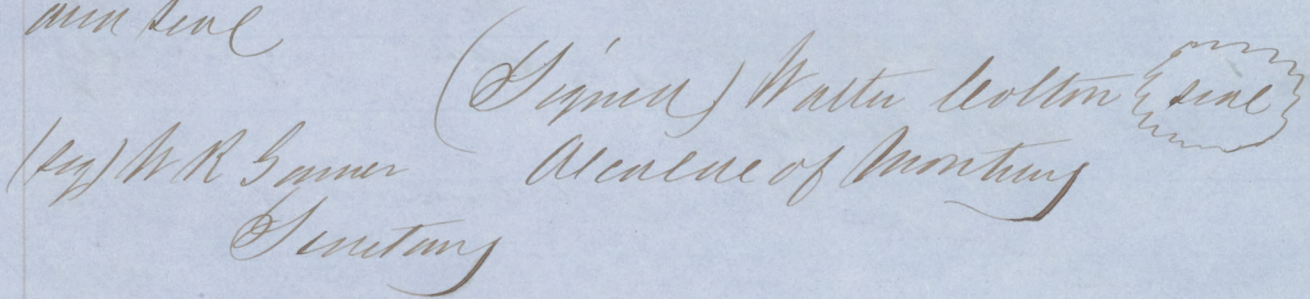 and seal
(Signed) Walter Colton {seal}
(sig) W R Garner Alcalde of Monterey
Secretary